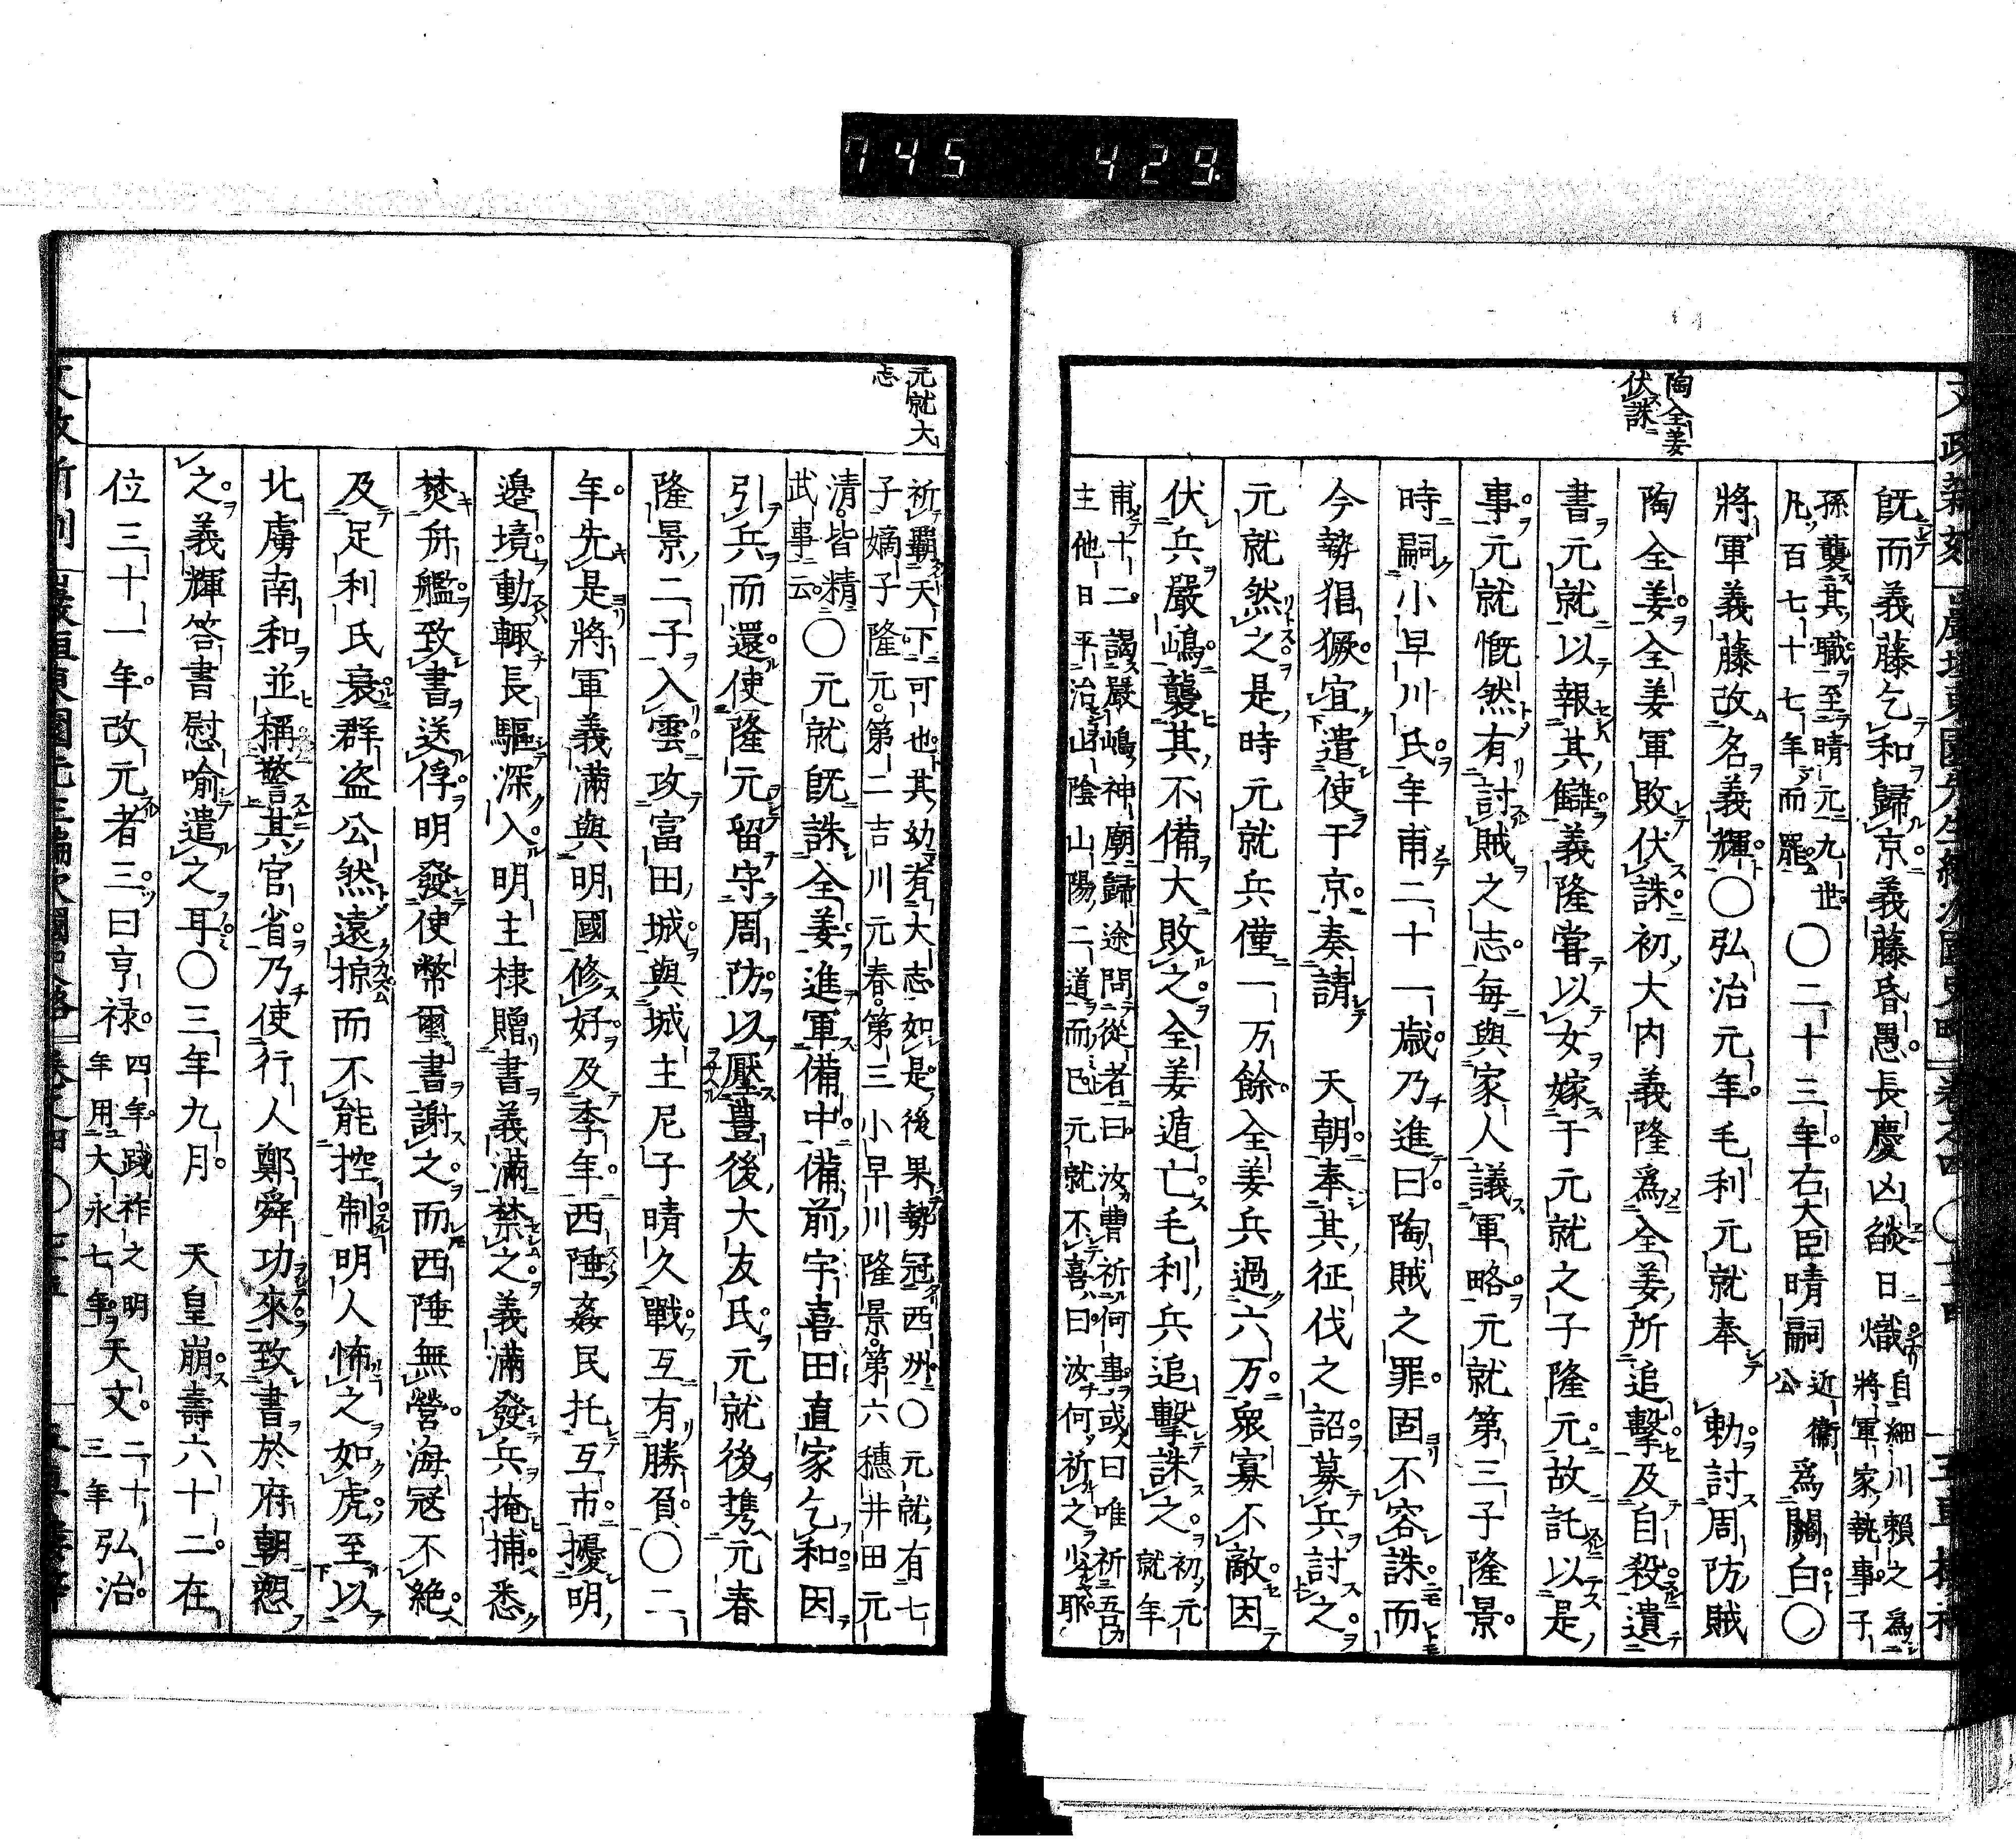 745 429
陶全姜
伏誅
既而義藤乞和歸京義藤昏愚長慶凶燄日熾自細川賴之爲將軍家執事子
孫襲其職至晴元九世凡百七十七年而罷〇二十三年右大臣晴嗣近衞公爲關白〇
將軍義藤改名義輝〇弘治元年毛利元就奉 勅討周防賊
陶全姜全姜軍敗伏誅初大内義隆爲全姜所追擊及自殺遺
書元就以報其讎義隆嘗以女嫁于元就之子隆元故託以是
事元就慨然有討賊之志每與家人議軍略元就第三子隆景
時嗣小早川氏年甫二十一歲乃進曰陶賊之罪固不容誅而
今勢猖獗宜遣使于京奏請 天朝奉其征伐之詔募兵討之
元就然之是時元就兵僅一万餘全姜兵過六万衆寡不敵因
伏兵嚴嶋襲其不備大敗之全姜遁亡毛利兵追擊誅之初元就年
甫十二謁嚴嶋神廟歸途問從者曰汝曹祈何事或曰唯祈三吾主他日平治山陰山陽二道而已元就不喜曰汝何祈之少耶
元就大
志
祈覇天下可也其幼有大志如是後果勢冠西州〇元就有七子嫡子隆元第二吉川元春第三小早川隆景第六穗井田元
清皆精武事云〇元就既誅全姜進軍備中備前宇喜田直家乞和因
引兵而還使隆元留守周防以壓豊後大友氏元就後携元春
隆景二子入雲攻富田城與城主尼子晴久戰互有勝負〇二
年先是將軍義滿與明國修好及季年西陲姦民托互市擾明
邊境動輙長驅深入明主棣贈書義滿禁之義滿發兵掩捕悉
焚舟艦致書送俘明發使幣璽書謝之而西陲無營海冦不絶
及足利氏衰群盗公然遠掠而不能控制明人怖之如虎至以
北虜南和並稱警其官省乃使行人鄭舜功來致書於府朝愬
之義輝答書慰喩遣之耳〇三年九月 天皇崩壽六十二在
位三十一年改元者三曰亨禄四年踐祚之明年用大永七年天文二十三年弘治